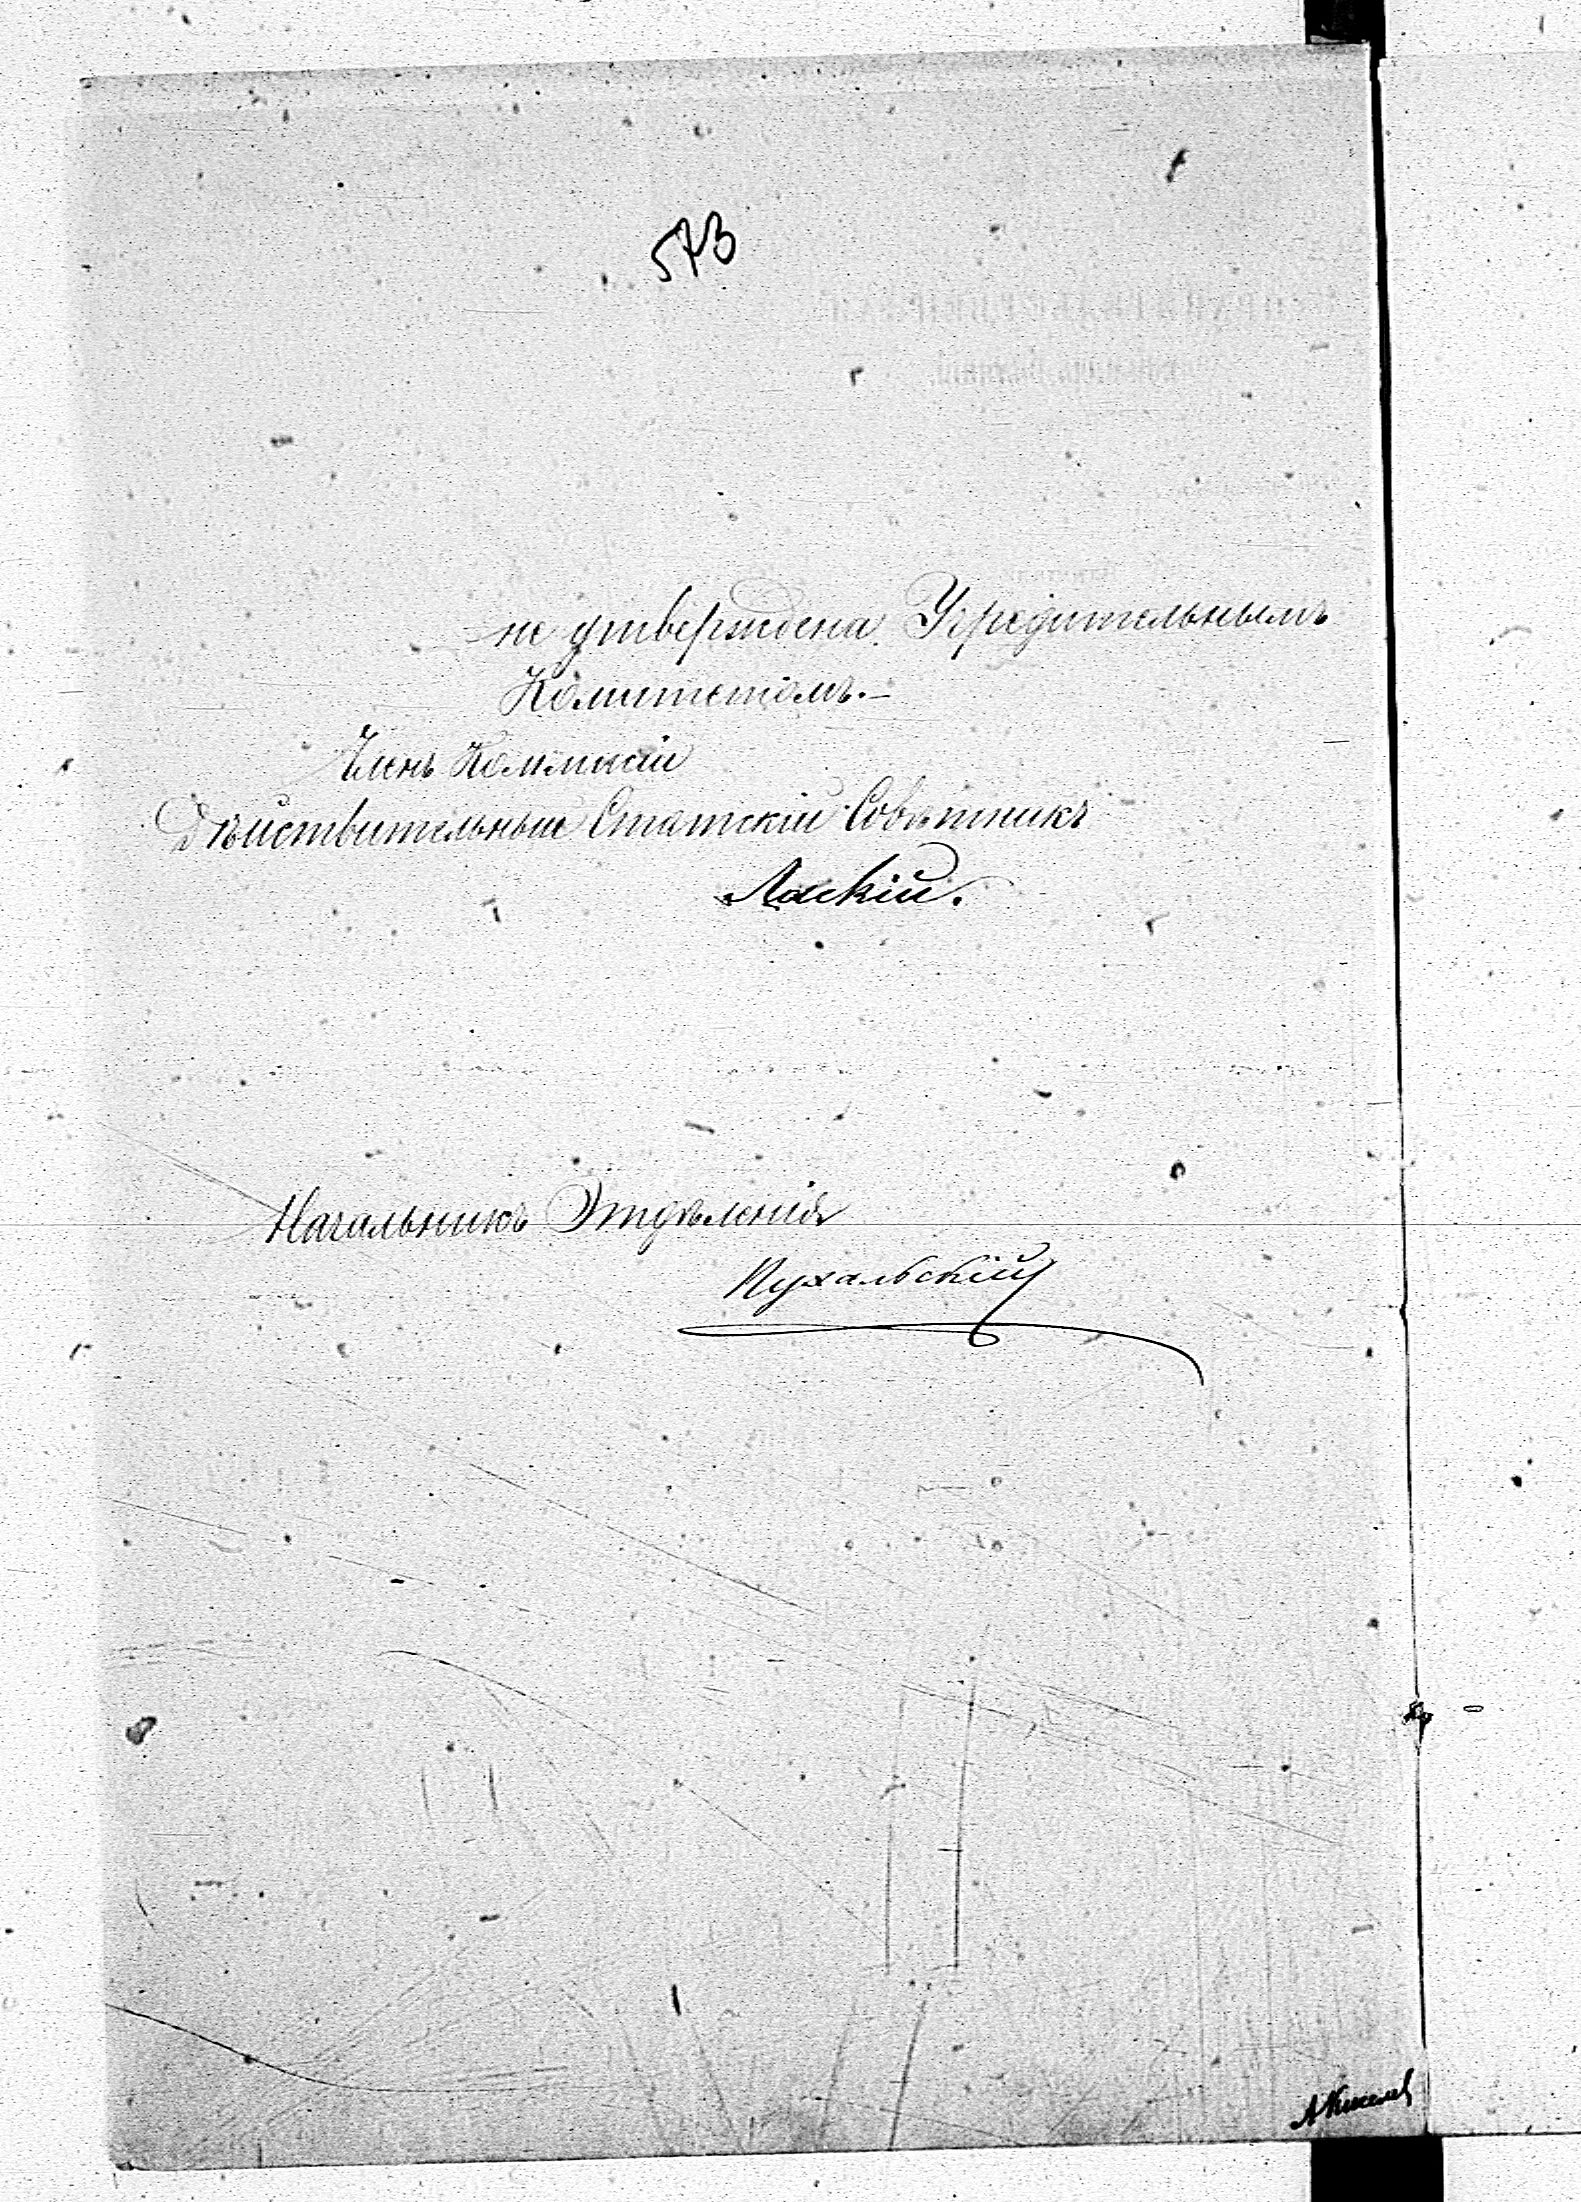 573
не утверждена Учредительнымъ
Комитетомъ.—
Членъ Коммисіи
Дѣйствительный Статскій Совѣтникъ
Ласкій.
Начальникъ Отдѣленія
Пухальскій
А Киселев